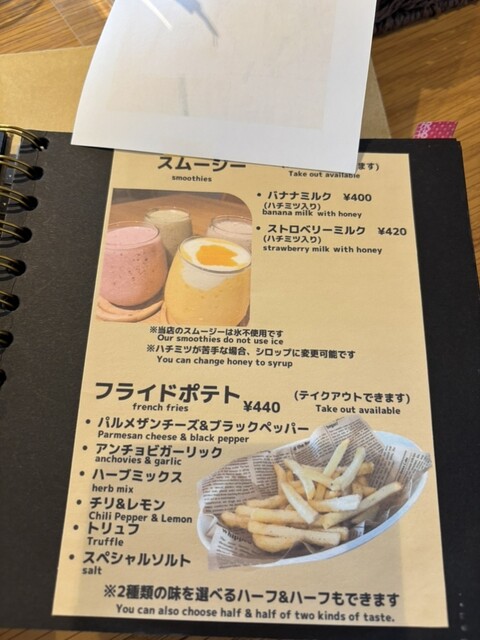 スムージー
ます)
smoothies
Take out available
• バナナミルク ¥400
(ハチミツ入り)
banana milk with honey
• ストロベリーミルク ¥420
(ハチミツ入り)
strawberry milk with honey
※当店のスムージーは氷不使用です
Our smoothies do not use ice
※ハチミツが苦手な場合、シロップに変更可能です
You can change honey to syrup
フライドポテト ¥440 (テイクアウトできます)
french fries
Take out available
• パルメザンチーズ&ブラックペッパー
Parmesan cheese & black pepper
• アンチョビガーリック
anchovies & garlic
• ハーブミックス
herb mix
• チリ&レモン
Chili Pepper & Lemon
• トリュフ
Truffle
• スペシャルソルト
salt
※2種類の味を選べるハーフ&ハーフもできます
You can also choose half & half of two kinds of taste.